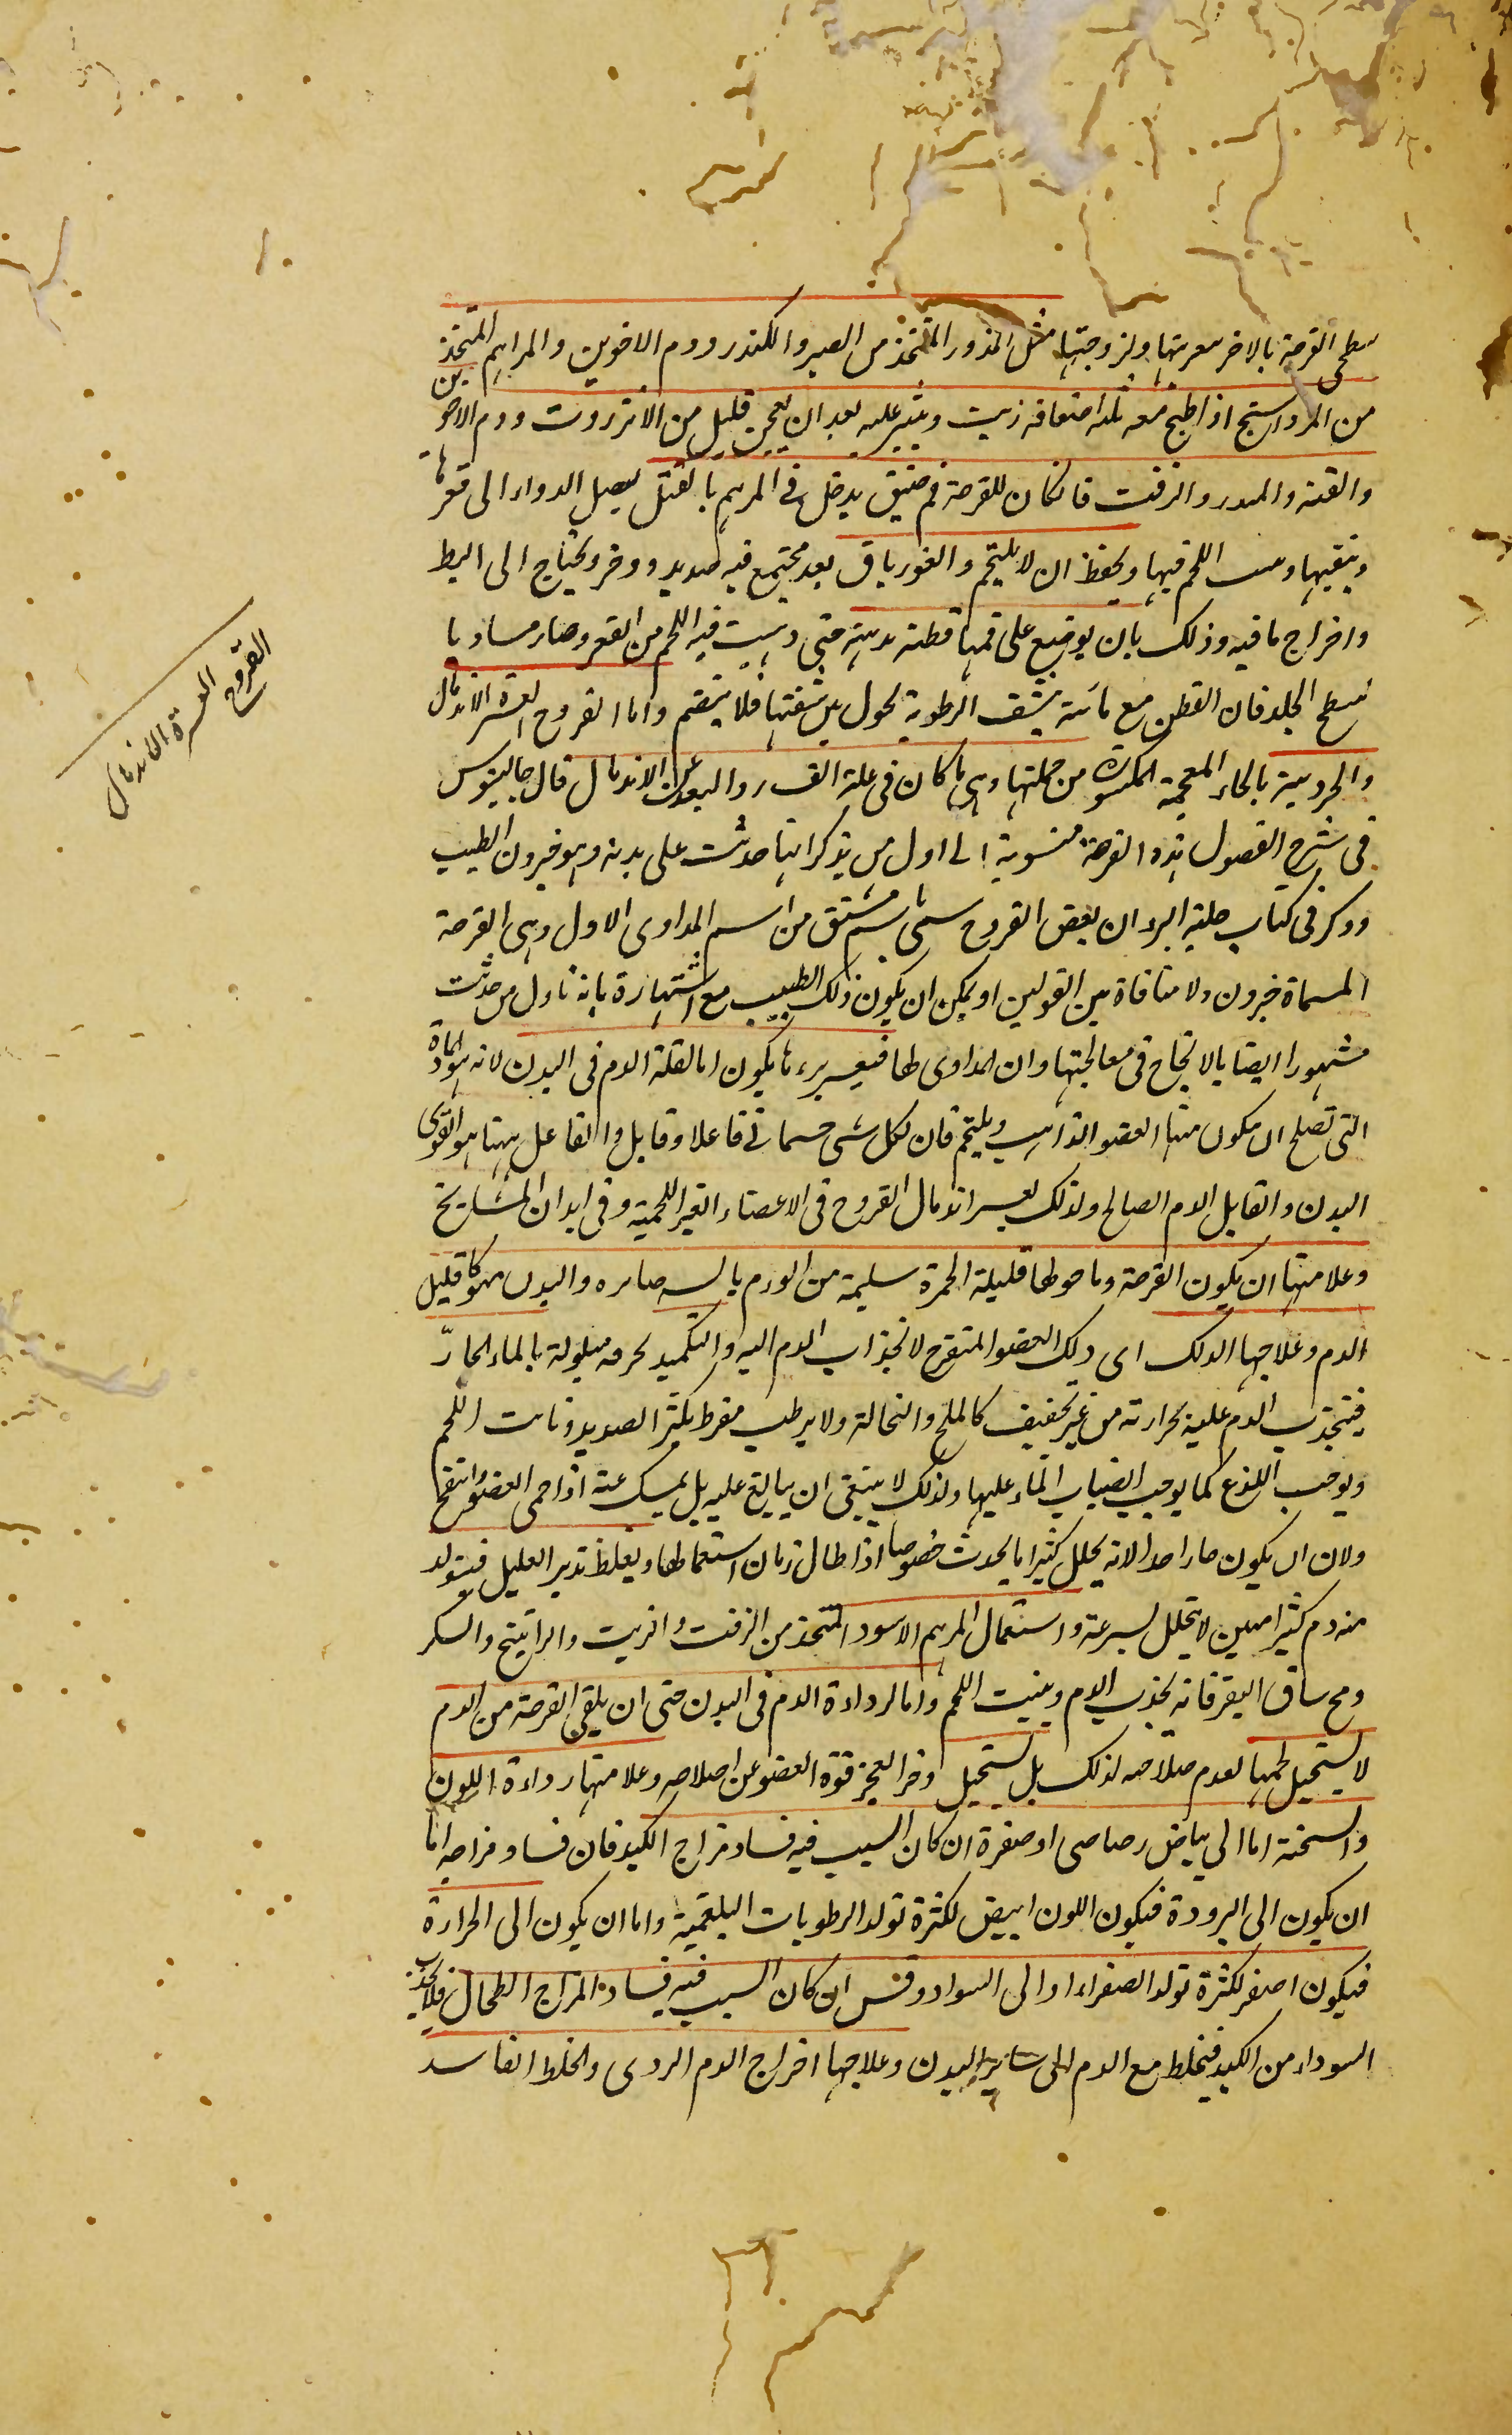 سطحى القرحة بالاخر بغريتها ولزوجتها مثل الذرور المتخذ من الصبر والكندر ودم الاخوين والمراهم المتخذ
من المرداسنج اذا طبخ معه ثلثة اضعافه زيت ونثر عليه بعد ان يعجن قليل من الانزروت ودم الاخوين
والقنة والزفت فان كان للقرحة فم ضيق يدخل فى المرهم بالفتل ليصل الدواء الى قعرها
وينقيها اللحم فيها ويحفظ ان لا يلتحم والغور باق بعد فيجتمع فيه صديد ووضر ويحتاج الى البط
واخراج ما فيه وذلك بان يوضع على فمها قطنة حتى ينبت فيه اللحم من القعر وصار مساويا
لسطح الجلد فان القطن مع ينشف الرطوبة يحول بين شفتيها فلا ينضم واما القروح العسرة الاندمال
والخرونية بالخاء المعجمة المكسورة من جملتها وهى ما كان فى غاية والبعد عن الاندمال قال جالينوس
فى شرح الفصول هذه القرحة منسوبة الى اول من يذكر انها حدثت على بدنه وهو خيرون الطبيب
وذكر فى كتاب حلية البرء ان بعض القروح سمى باسم مشتق من اسم المداوى الاول وهى القرحة
المسماة خيرون ولا منافاة بين القولين اذ يمكن ان يكون ذلك الطبيب مع اشتهاره بانه اول من حدثت
مشهورا ايضا بالانجاح فى معالجتها وان المداوى لها فيعسر برءها يكون اما لقلة الدم فى البدن لانه هو المادة
التى تصلح ان يتكون منها العضو الذاهب ويلتحم فان لكل شى جسمانى فاعلا وقابل والفاعل ههنا هو القوى
البدن والقابل الدم الصالح ولذلك يعسر اندمال القروح فى الاعضاء الغير اللحمية وفى ابدان المشايخ
وعلامتها ان يكون القرحة وما حولها قليلة الحمرة سليمة من الورم يابسة والبدن منهوكا قليل
الدم وعلاجها الدلك اى دلك العضو المتقرح لانجذاب الدم اليه والتكميد بخرقة مبلولة بالماء الحارّ
فينجذب الدم عليه بحرارته من غير تجفيف كالملح والنخالة ولا ترطيب مفرط يكثر الصديد اللحم
ويوجب اللذع كما يوجب انصباب الماء عليها ولذلك لا ينبغى ان يبالغ عليه بل يمسك عنه اذا احمى العضو وانتفخ
ولان ان يكون حارا جدا لانه يحلل كثيرا ما يحدث خصوصا اذا طال زمان استعمالها ويغلظ تدبير العليل فيتولد
منه دم كثير متين لا يتحلل بسرعة واستعمال المرهم الاسود المتخذ من الزفت والزيت والراتينج والسكر
ومخ ساق البقر فانه يجذب الدم وينبت اللحم واما لرداءة الدم فى البدن حتى ان يلقى القرحة من الدم
لا يستحيل لحمها لعدم صلاحه لذلك بل يستحيل وضرا لعجز قوة العضو عن اصلاحه وعلامتها رداءة اللون
والسحنة اما الى بياض رصاصى او صفرة ان كان السبب فيه فساد مزاج الكبد فان فساد مزاجه اما
ان يكون الى البرودة فيكون اللون ابيض لكثرة تولد الرطوبات البلغمية واما ان يكون الى الحرارة
فيكون اصفر لكثرة تولد الصفراء او الى السواد ان كان السبب فيه فساد المزاج الطحال فلا يجذب
السوداء من الكبد فيخلط مع الدم الى سائر البدن وعلاجها اخراج الدم الردى والخلط الفاسد
القروح العسرة الاندمال